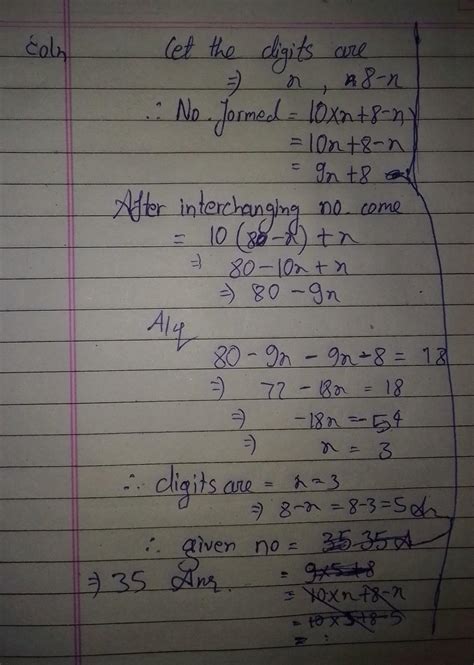 Soln Let the digits are
⇒ x, 8-x
∴ No. formed = 10×x+8-x
= 10x+8-x
= 9x+8
After interchanging no. come
= 10 (80-x) + x
⇒ 80-10x+x
⇒ 80-9x
A/q
80-9x-9x-8 = 18
⇒ 72-18x = 18
⇒ -18x = -54
⇒ x = 3
∴ digits are = x = 3
⇒ 8-x = 8-3 = 5 An
∴ given no = 35 35 A
⇒ 35 Ans. = 9×5+8
= 10×x+8-x
= 10×5+8-5
=